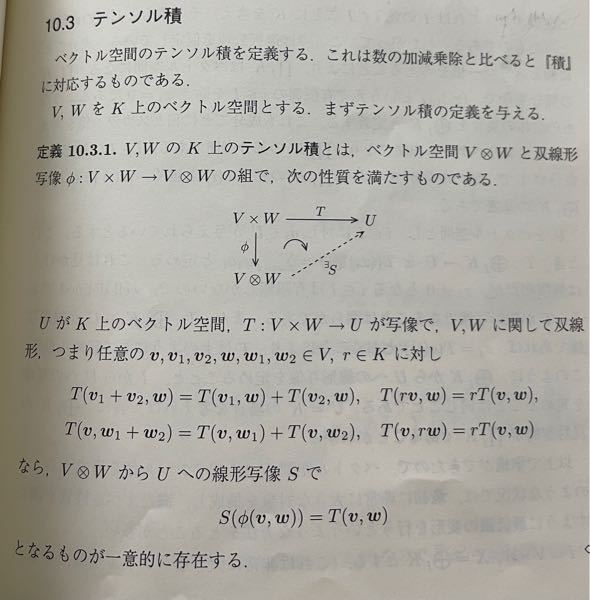 10.3 テンソル積
ベクトル空間のテンソル積を定義する．これは数の加減乗除と比べると『積』
に対応するものである．
V, W を K 上のベクトル空間とする．まずテンソル積の定義を与える．
定義 10.3.1. V, W の K 上のテンソル積とは，ベクトル空間 V ⊗ W と双線形
写像 ϕ : V × W → V ⊗ W の組で，次の性質を満たすものである．
V × W T U
ϕ
∃S
V ⊗ W
U が K 上のベクトル空間，T : V × W → U が写像で，V, W に関して双線
形，つまり任意の v, v₁, v₂, w, w₁, w₂ ∈ V, r ∈ K に対し
T(v₁ + v₂, w) = T(v₁, w) + T(v₂, w), T(rv, w) = rT(v, w),
T(v, w₁ + w₂) = T(v, w₁) + T(v, w₂), T(v, rw) = rT(v, w)
なら，V ⊗ W から U への線形写像 S で
S(ϕ(v, w)) = T(v, w)
となるものが一意的に存在する．